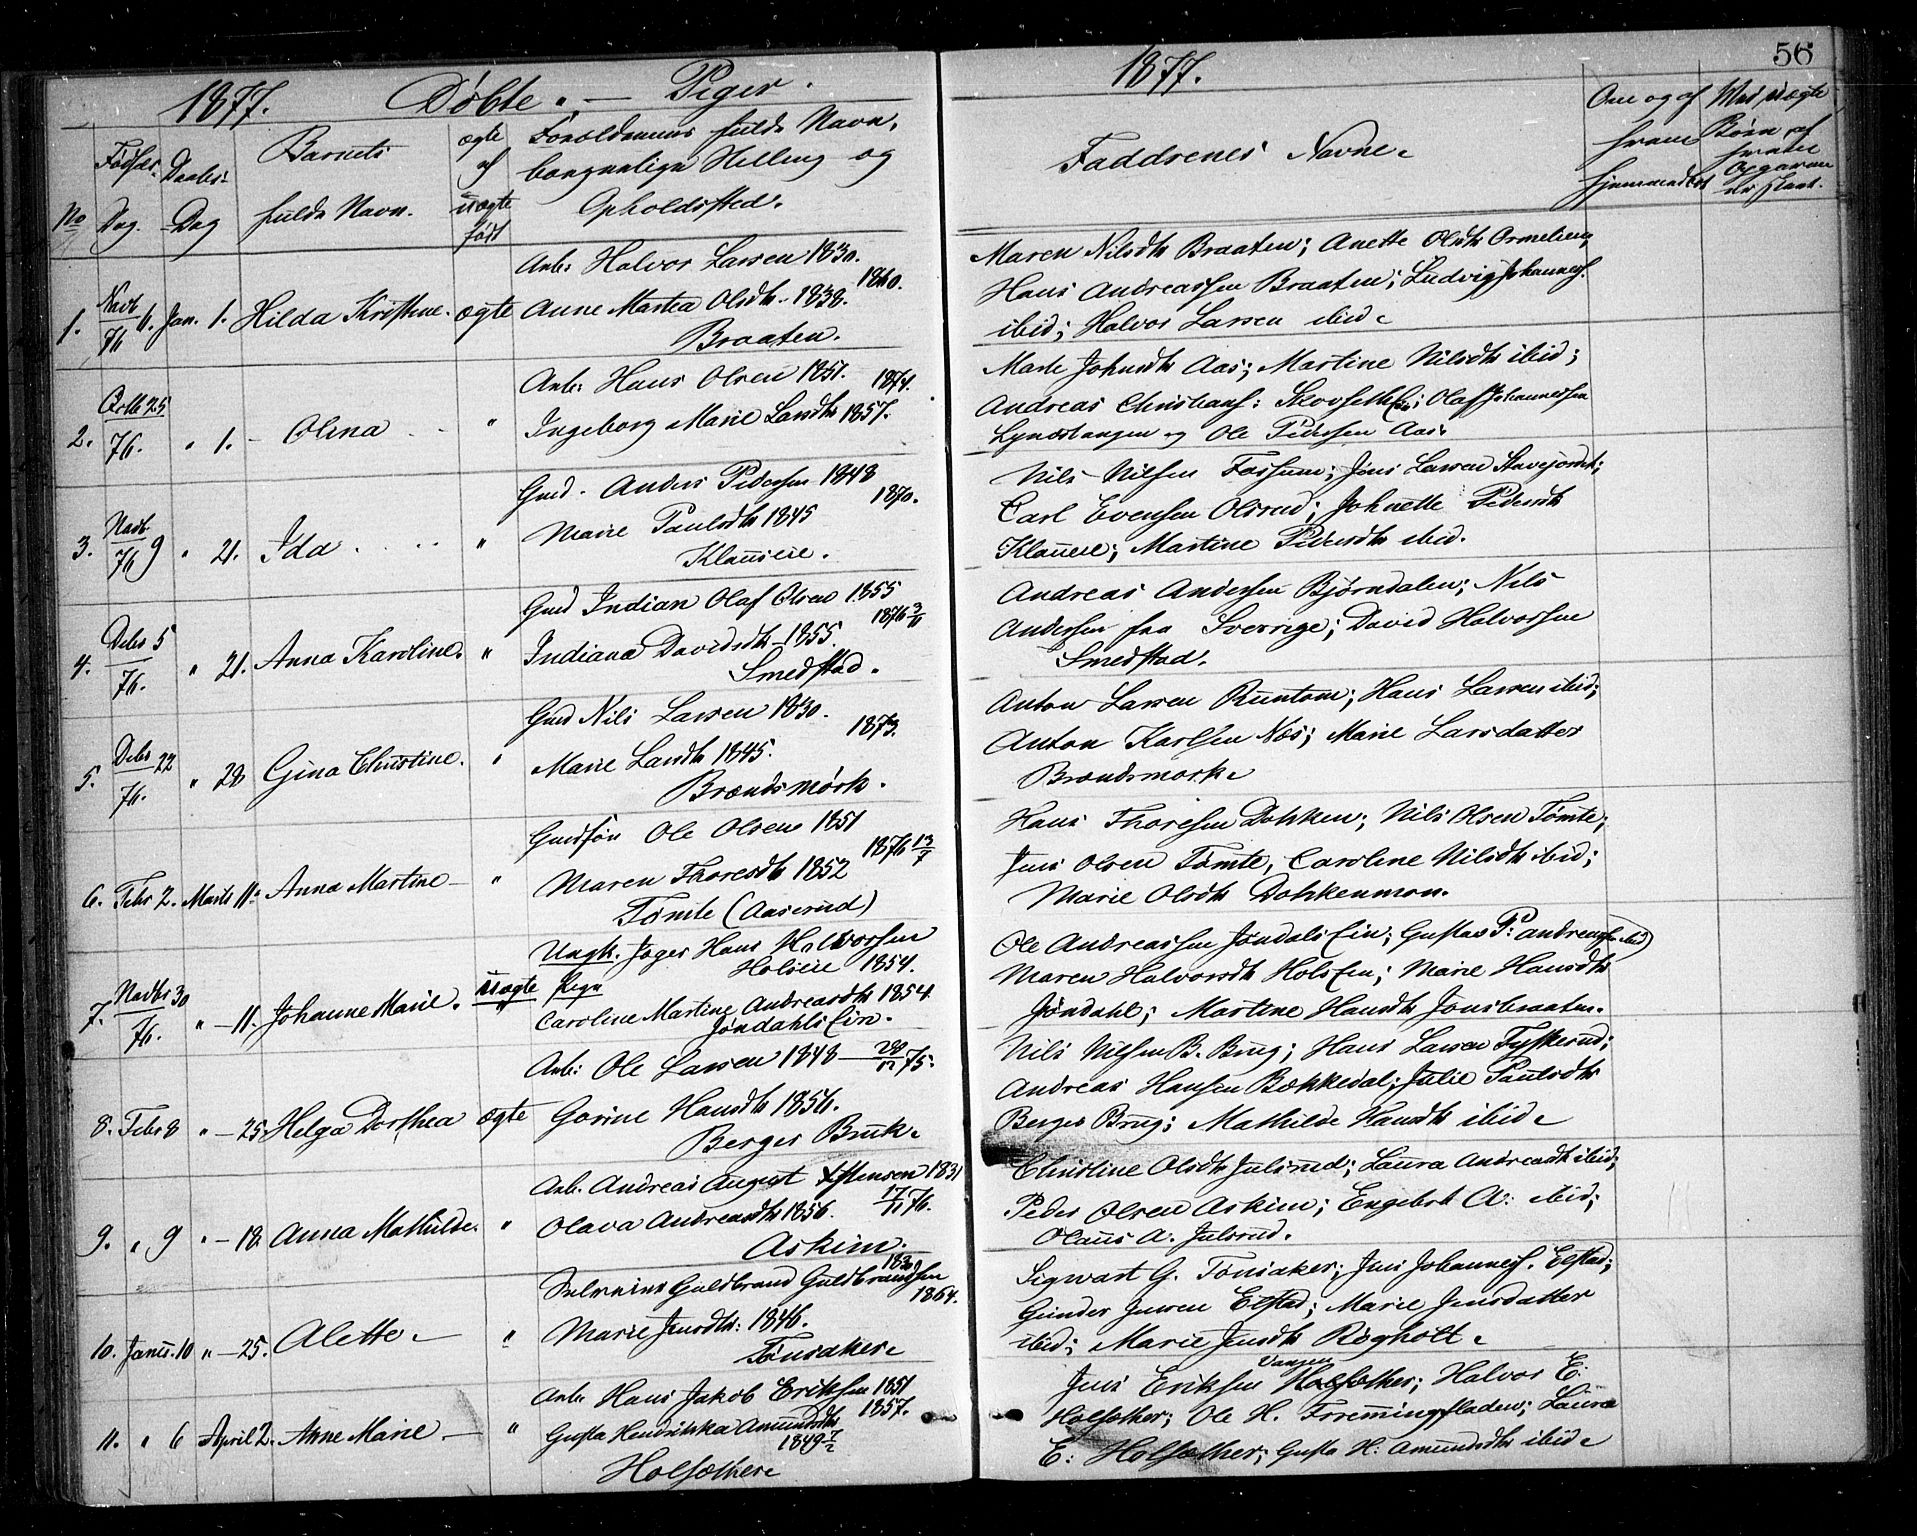 1877. Døbte. — Piger.
No
Fødsels Dag.
Daabs- Dag
Barnets fulde Navn.
ægte af uægte født
Forældrenes fulde Navn, borgerlige Stilling og Opholdssted.
1. Novb 6. 76 Jan. 1. Hilda Kristine. ægte
Arb: Halvor Larsen 1830.
1860.
Anne Martea Olsdtr. 1838.
Braaten.
2. Octb 25 76. " 1. Olina "
Arb: Hans Olsen 1851. 1874.
Ingeborg Marie Larsdtr 1857.
3. Novb. 9 76 " 21. Ida "
Gmd. Anders Pedersen 1848
1870.
Marie Paulsdtr 1845
Klauseie.
4. Debr 5 76. " 21. Anna Karoline. "
Gmd Indian Olaf Olsen 1855
1876 3/11
Indiana Davidsdtr 1855.
Smedstad.
5. Debr 22 76. " 28 Gina Christine. "
Gmd Nils Larsen 1830.
1873.
Marie Larsdtr 1845.
Brændsmørk.
6. Febr 2. Marts 11. Anna Martine "
Gmdsøn Ole Olsen 1851
1876 13/7
Maren Thoresdtr 1852
Tømte (Aaserud)
7. Novbr 30 76. " 11. Johanne Marie. uægte
Ungk. Jæger Hans Halvorsen
Holseie 1854.
Pige
Caroline Martine Andreasdtr 1854.
Jøndahls Ein.
8. Febr 8 " 25. Helga Dorthea ægte
Arb: Ole Larsen 1848 28/12 75.
Gorine Hansdtr 1856.
Berger Bruk.
9. " 9 " 18. Anna Mathilde. "
Arb. Andreas August Estensen 1831
17/11 76.
Olava Andreasdtr 1856.
Askim.
10. Janu. 10 " 25. Alette. "
Selveier Guldbrand Guldbrandsen
1864.
Marie Jensdtr: 1846.
Tønsaker.
11. " 6 April 2. Anne Marie "
Arb. Hans Jakob Eriksen 1851
1857.
Gusta Hendrikka Amundsdtr
1849 7/2
Holsæther
1877.
56
Faddrenes Navne.
Om og af hvem hjemmedøbt
Ved uægte Børn af hvem Opgaven er skeet.
Maren Nilsdtr Braaten; Anette Olsdtr Ormelien;
Hans Andreassen Braaten; Ludvig Johannes.
ibid; Halvor Larsen ibid.
Marte Johnsdtr Aas; Martine Nilsdtr ibid;
Andreas Christians: Skovseth Ein; Olaf Johannessen
Lyndstangen og Ole Pedersen Aas.
Nils Nilsen Fossum; Jens Larsen
Carl Evensen Olsrud; Johnette Pedersdtr
Klauseie; Martine Pedersdtr ibid.
Andreas Andersen Bjørndalen; Nils
Andersen fra Sverrige; David Halvorsen
Smedstad.
Anton Larsen Runtom; Hans Larsen ibid;
Anton Karlsen Næs; Marie Larsdatter
Brændsmørk.
Hans Thoresen Dokken; Nils Olsen Tømte;
Jens Olsen Tømte, Caroline Nilsdtr ibid;
Marie Olsdtr Dokkenmon.
Ole Andreassen Jøndals Ein; Gustav P: Andreassen ibid
Maren Halvorsdtr Hols Ein; Marie Hansdtr
Jøndahl; Martine Hansdtr Jonsbraaten.
Nils Nilsen B. Brug; Hans Larsen Tyskerud;
Andreas Hansen Bækkedal; Julie Paulsdtr
Berger Brug; Mathilde Hansdtr ibid.
Christine Olsdtr Julsrud; Laura Andreasdtr ibid;
Peder Olsen Askim; Engebret A: ibid;
Olaus A. Julsrud.
Sigwart G. Tønsaker; Jens Johannes. Elstad;
Gunder Jensen Elstad; Marie Jensdatter
ibid; Marie Jensdtr Røgholt.
Jens Eriksen Holsæther; Halvor E:
Holsæther; Ole H. Fremmingsfladen; Laura
E: Holsæther; Gusta H: Amundsdtr ibid.